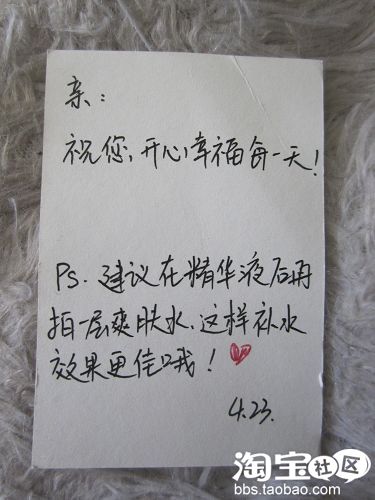 亲：
祝您，开心幸福每一天！
Ps. 建议在精华液后再
拍一层爽肤水，这样补水
效果更佳哦！
4.23.
淘宝社区
bbs.taobao.com